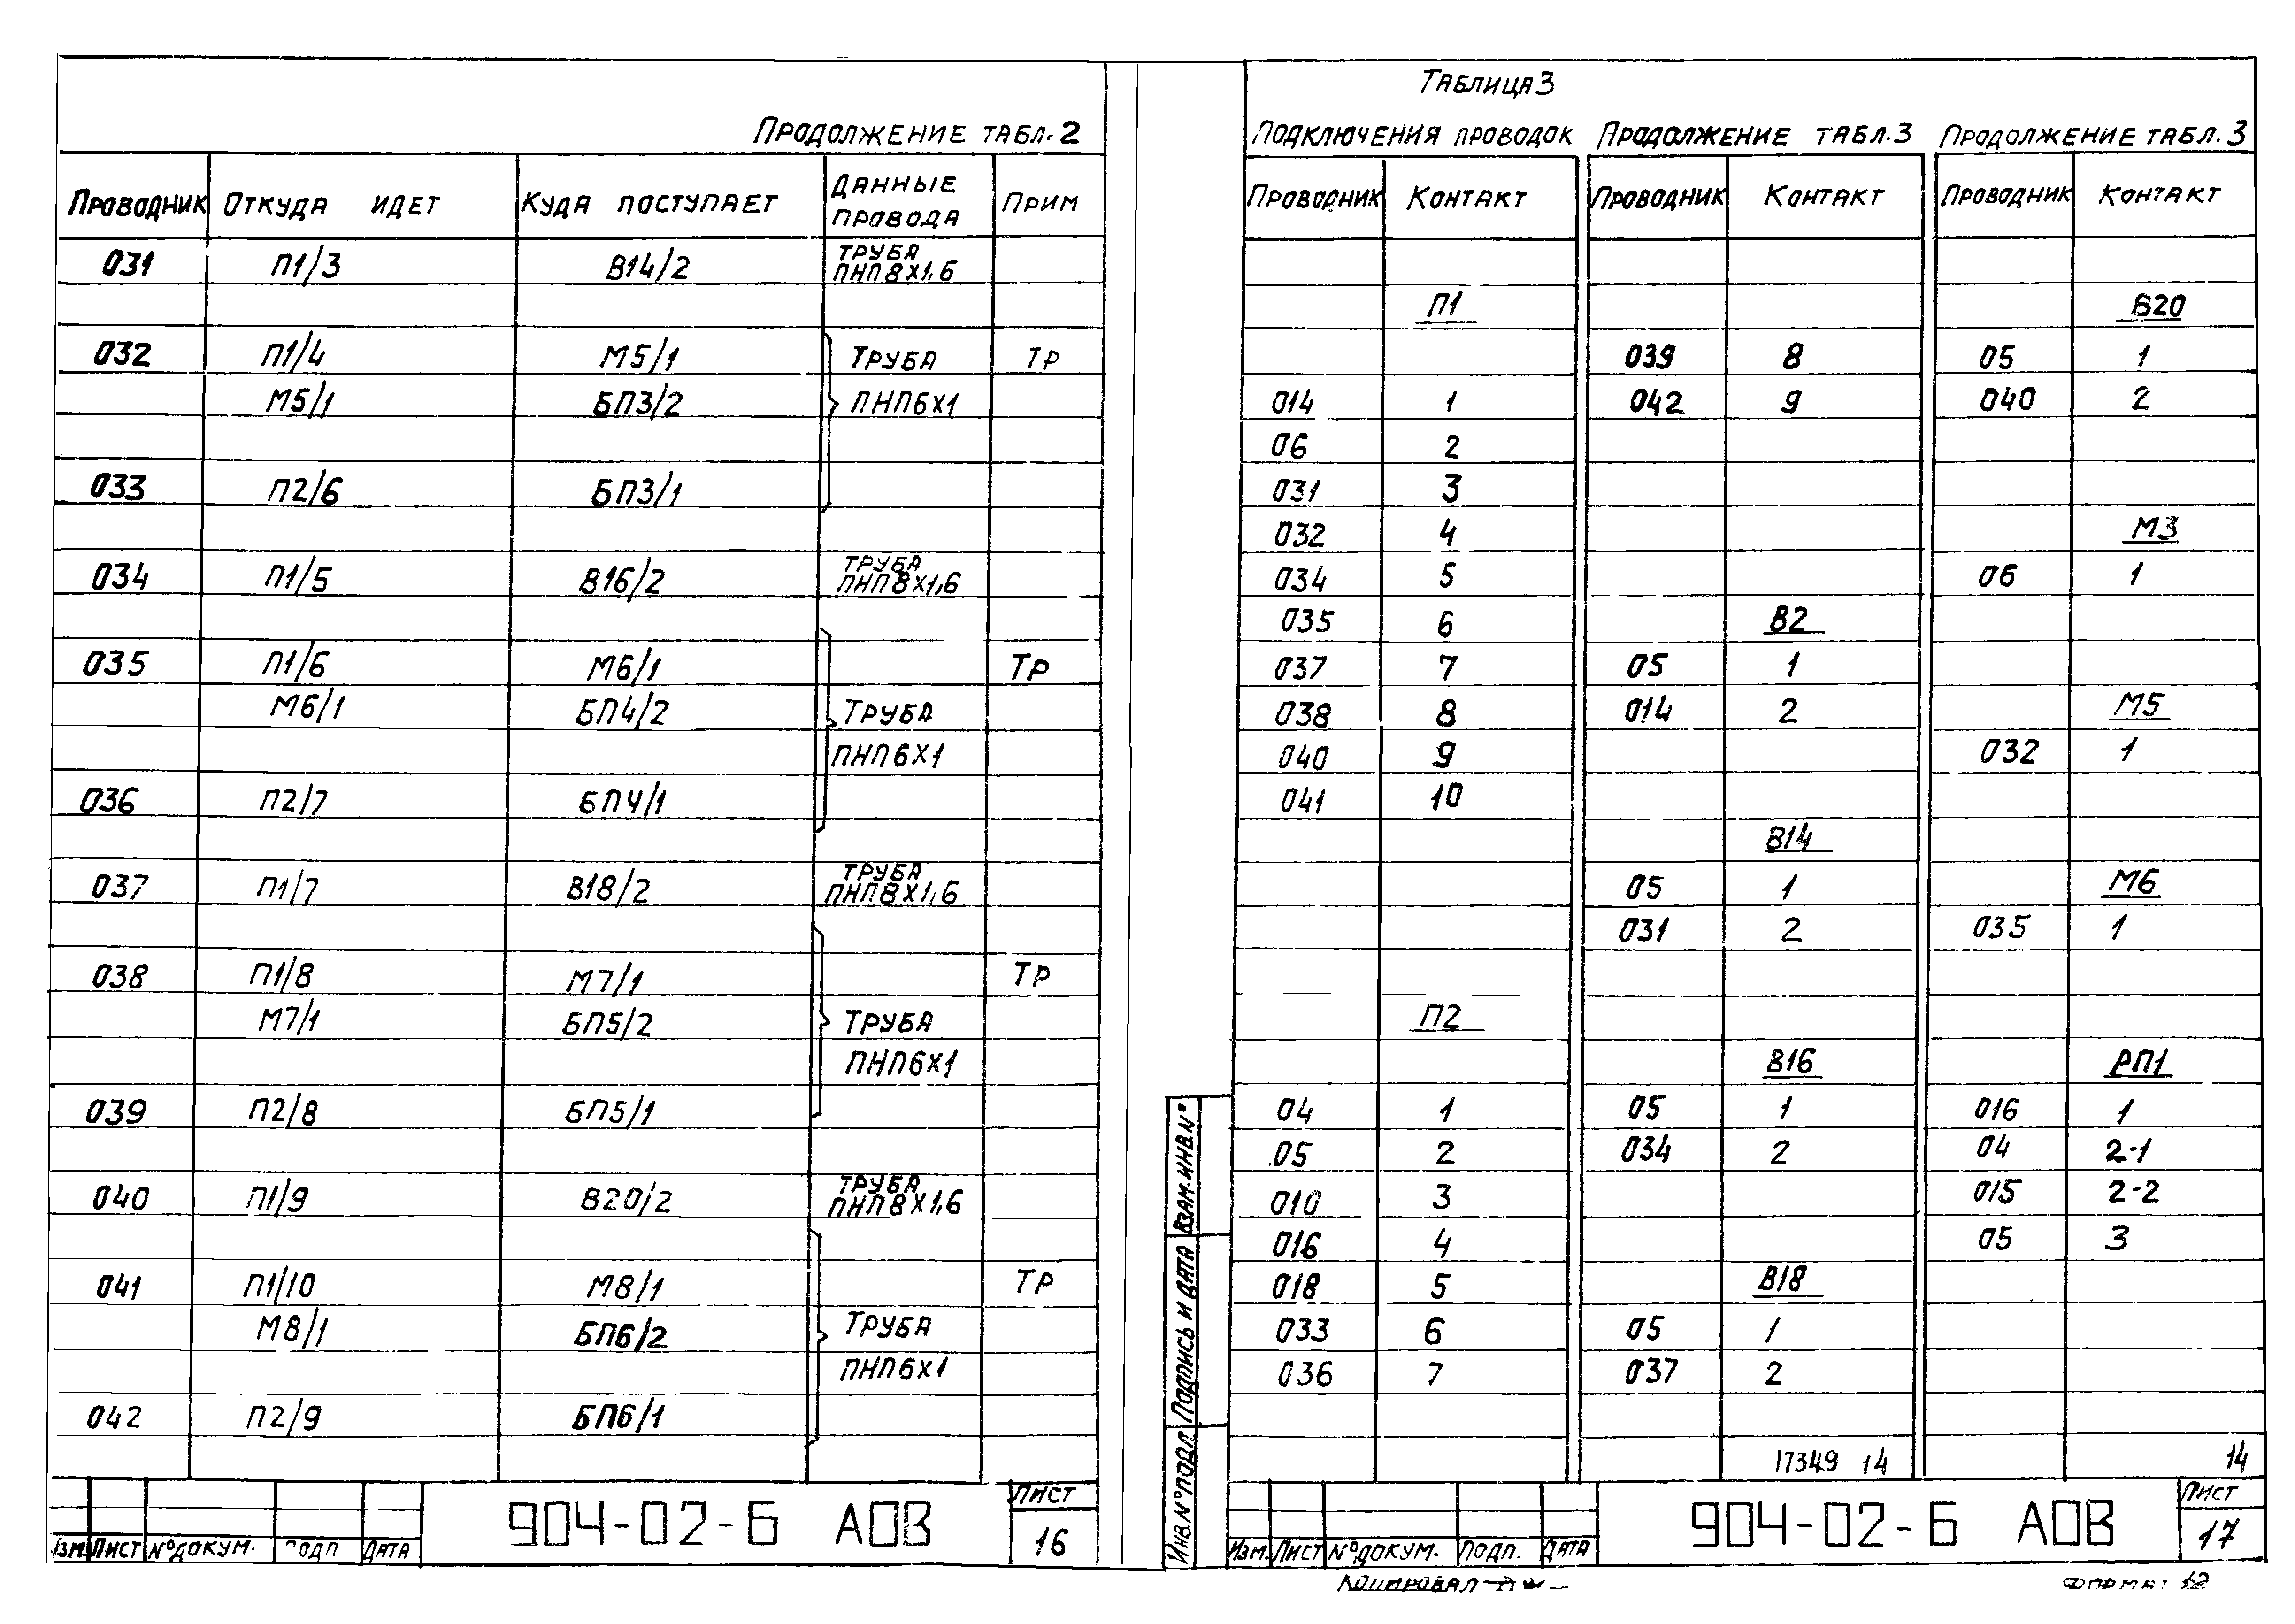 Продолжение табл. 2
Проводник Откуда идет Куда поступает Данные провода Прим
031 П1/3 В14/2 труба ПНП8х1,6
032 П1/4 М5/1 труба тр
М5/1 БП3/2 ПНП6х1
033 П2/6 БП3/1
034 П1/5 В16/2 труба ПНП8х1,6
035 П1/6 М6/1 тр
М6/1 БП4/2 труба
ПНП6х1
036 П2/7 БП4/1
037 П1/7 В18/2 труба ПНП8х1,6
038 П1/8 М7/1 тр
М7/1 БП5/2 труба
ПНП6х1
039 П2/8 БП5/1
040 П1/9 В20/2 труба ПНП8х1,6
041 П1/10 М8/1 тр
М8/1 БП6/2 труба
ПНП6х1
042 П2/9 БП6/1
Изм. Лист №докум. Подп Дата
904-02-6 АОВ
Лист
16
Таблица 3
Подключения проводок
Проводник Контакт
П1
014 1
06 2
031 3
032 4
034 5
035 6
037 7
038 8
040 9
041 10
П2
04 1
05 2
010 3
016 4
018 5
033 6
036 7
Продолжение табл. 3
Проводник Контакт
039 8
042 9
В2
05 1
014 2
В14
05 1
031 2
В16
05 1
034 2
В18
05 1
037 2
17349 14
Продолжение табл. 3
Проводник Контакт
В20
05 1
040 2
М3
06 1
М5
032 1
М6
035 1
РП1
016 1
04 2-1
015 2-2
05 3
14
Взам. инв. №
Подпись и дата
Инв. № подл.
Изм. Лист №докум. Подп. Дата
904-02-6 АОВ
Лист
17
Копировал
Формат 12